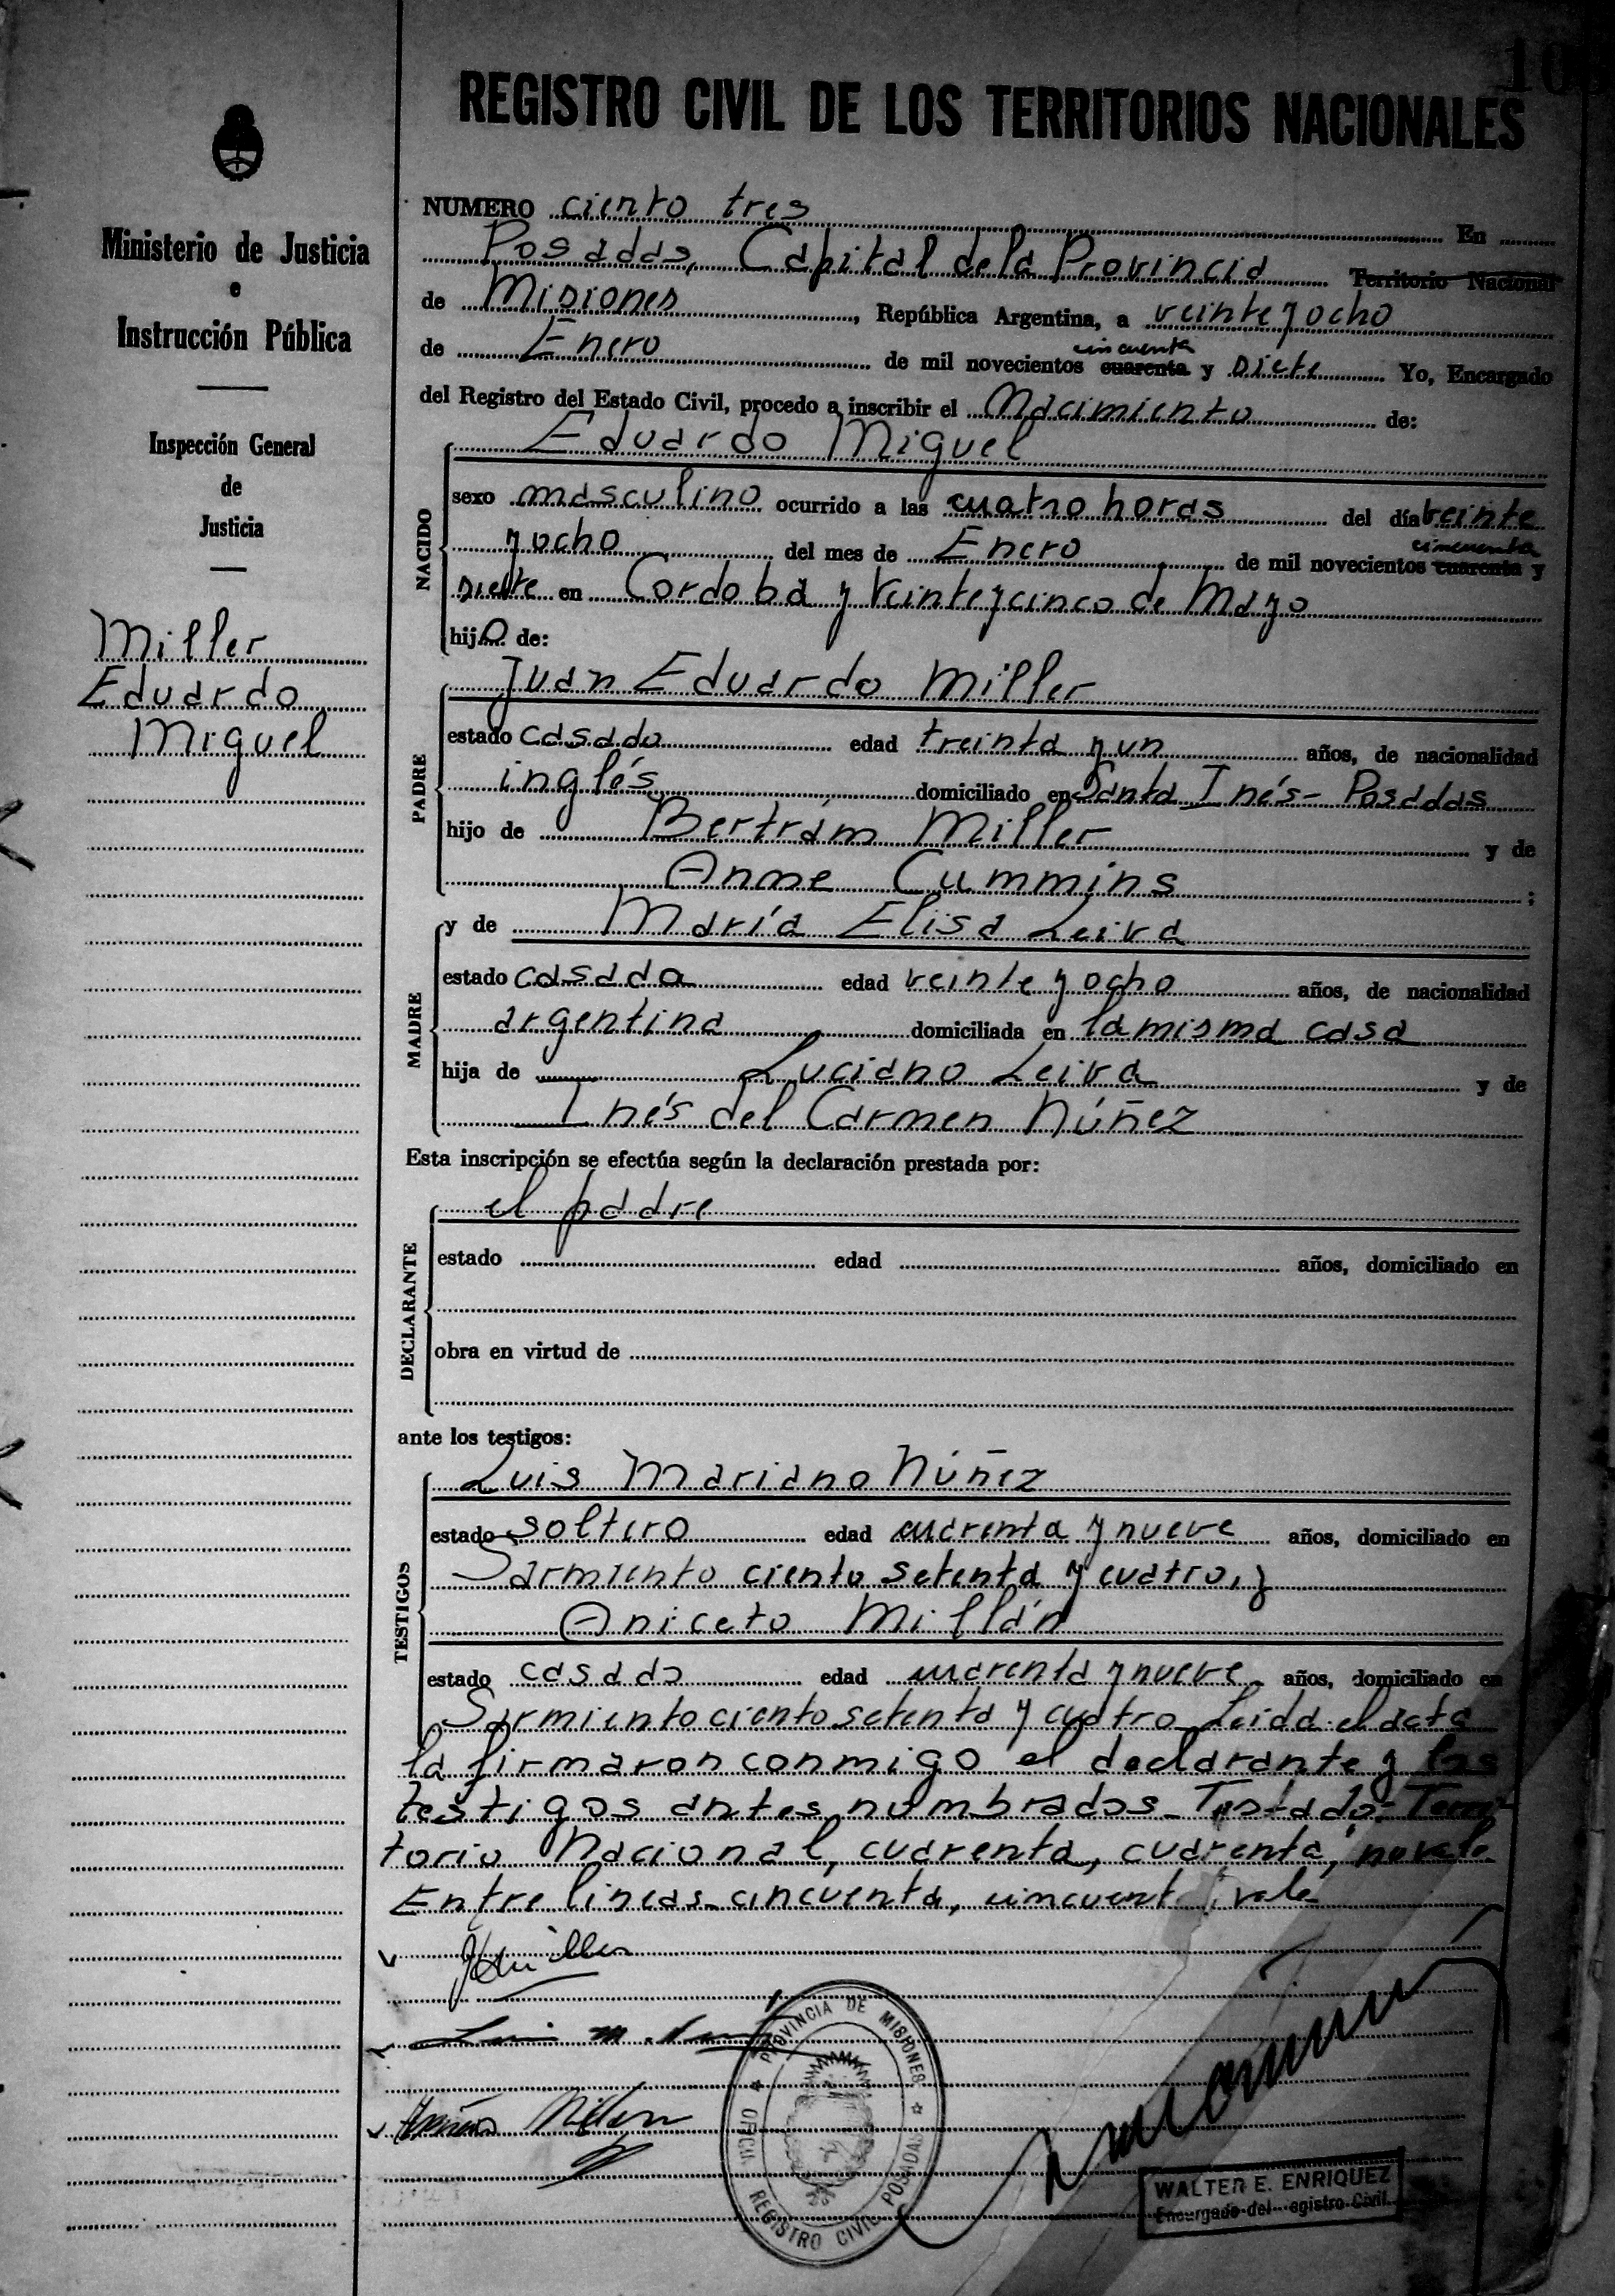 REGISTRO CIVIL DE LOS TERRITORIOS NACIONALES
Ministerio de Justicia
e
Instrucción Pública
Inspección General
de
Justicia
Miller
Eduardo
Miguel
NUMERO ciento tres En
Posadas, Capital de la Provincia Territorio Nacional
de Misiones, República Argentina, a veinte y ocho
cincuenta
de Enero de mil novecientos cuarenta y siete Yo, Encargado
del Registro del Estado Civil, procedo a inscribir el Nacimiento de:
NACIDO
Eduardo Miguel
sexo masculino ocurrido a las cuatro horas del día veinte
cincuenta
y ocho del mes de Enero de mil novecientos cuarenta y
siete en Cordoba y Veinte y cinco de Mayo
hijo de:
PADRE
Juan Eduardo Miller
estado casado edad treinta y un años, de nacionalidad
inglés domiciliado en Santa Inés - Posadas
hijo de Bertrám Miller y de
Anne Cummins ;
MADRE
y de María Elisa Leiva
estado casada edad veinte y ocho años, de nacionalidad
argentina domiciliada en la misma casa
hija de Luciano Leiva y de
Inés del Carmen Núñez
Esta inscripción se efectúa según la declaración prestada por:
DECLARANTE
el padre
estado edad años, domiciliado en
obra en virtud de
ante los testigos:
TESTIGOS
Luis Mariano Núñez
estado soltero edad cuarenta y nueve años, domiciliado en
Sarmiento ciento setenta y cuatro, y
Aniceto Millán
estado casado edad cuarenta y nueve años, domiciliado en
Sarmiento ciento setenta y cuatro Leida el acta
la firmaron conmigo el declarante y los
testigos antes nombrados - Testado: Terri
torio Nacional, cuarenta, cuarenta, no vale
Entre lineas - cincuenta, cincuenta vale
JEMiller
Luis M. Nuñez
PROVINCIA DE MISIONES
REGISTRO CIVIL POSADAS
WALTER E. ENRIQUEZ
Encargado del Registro Civil